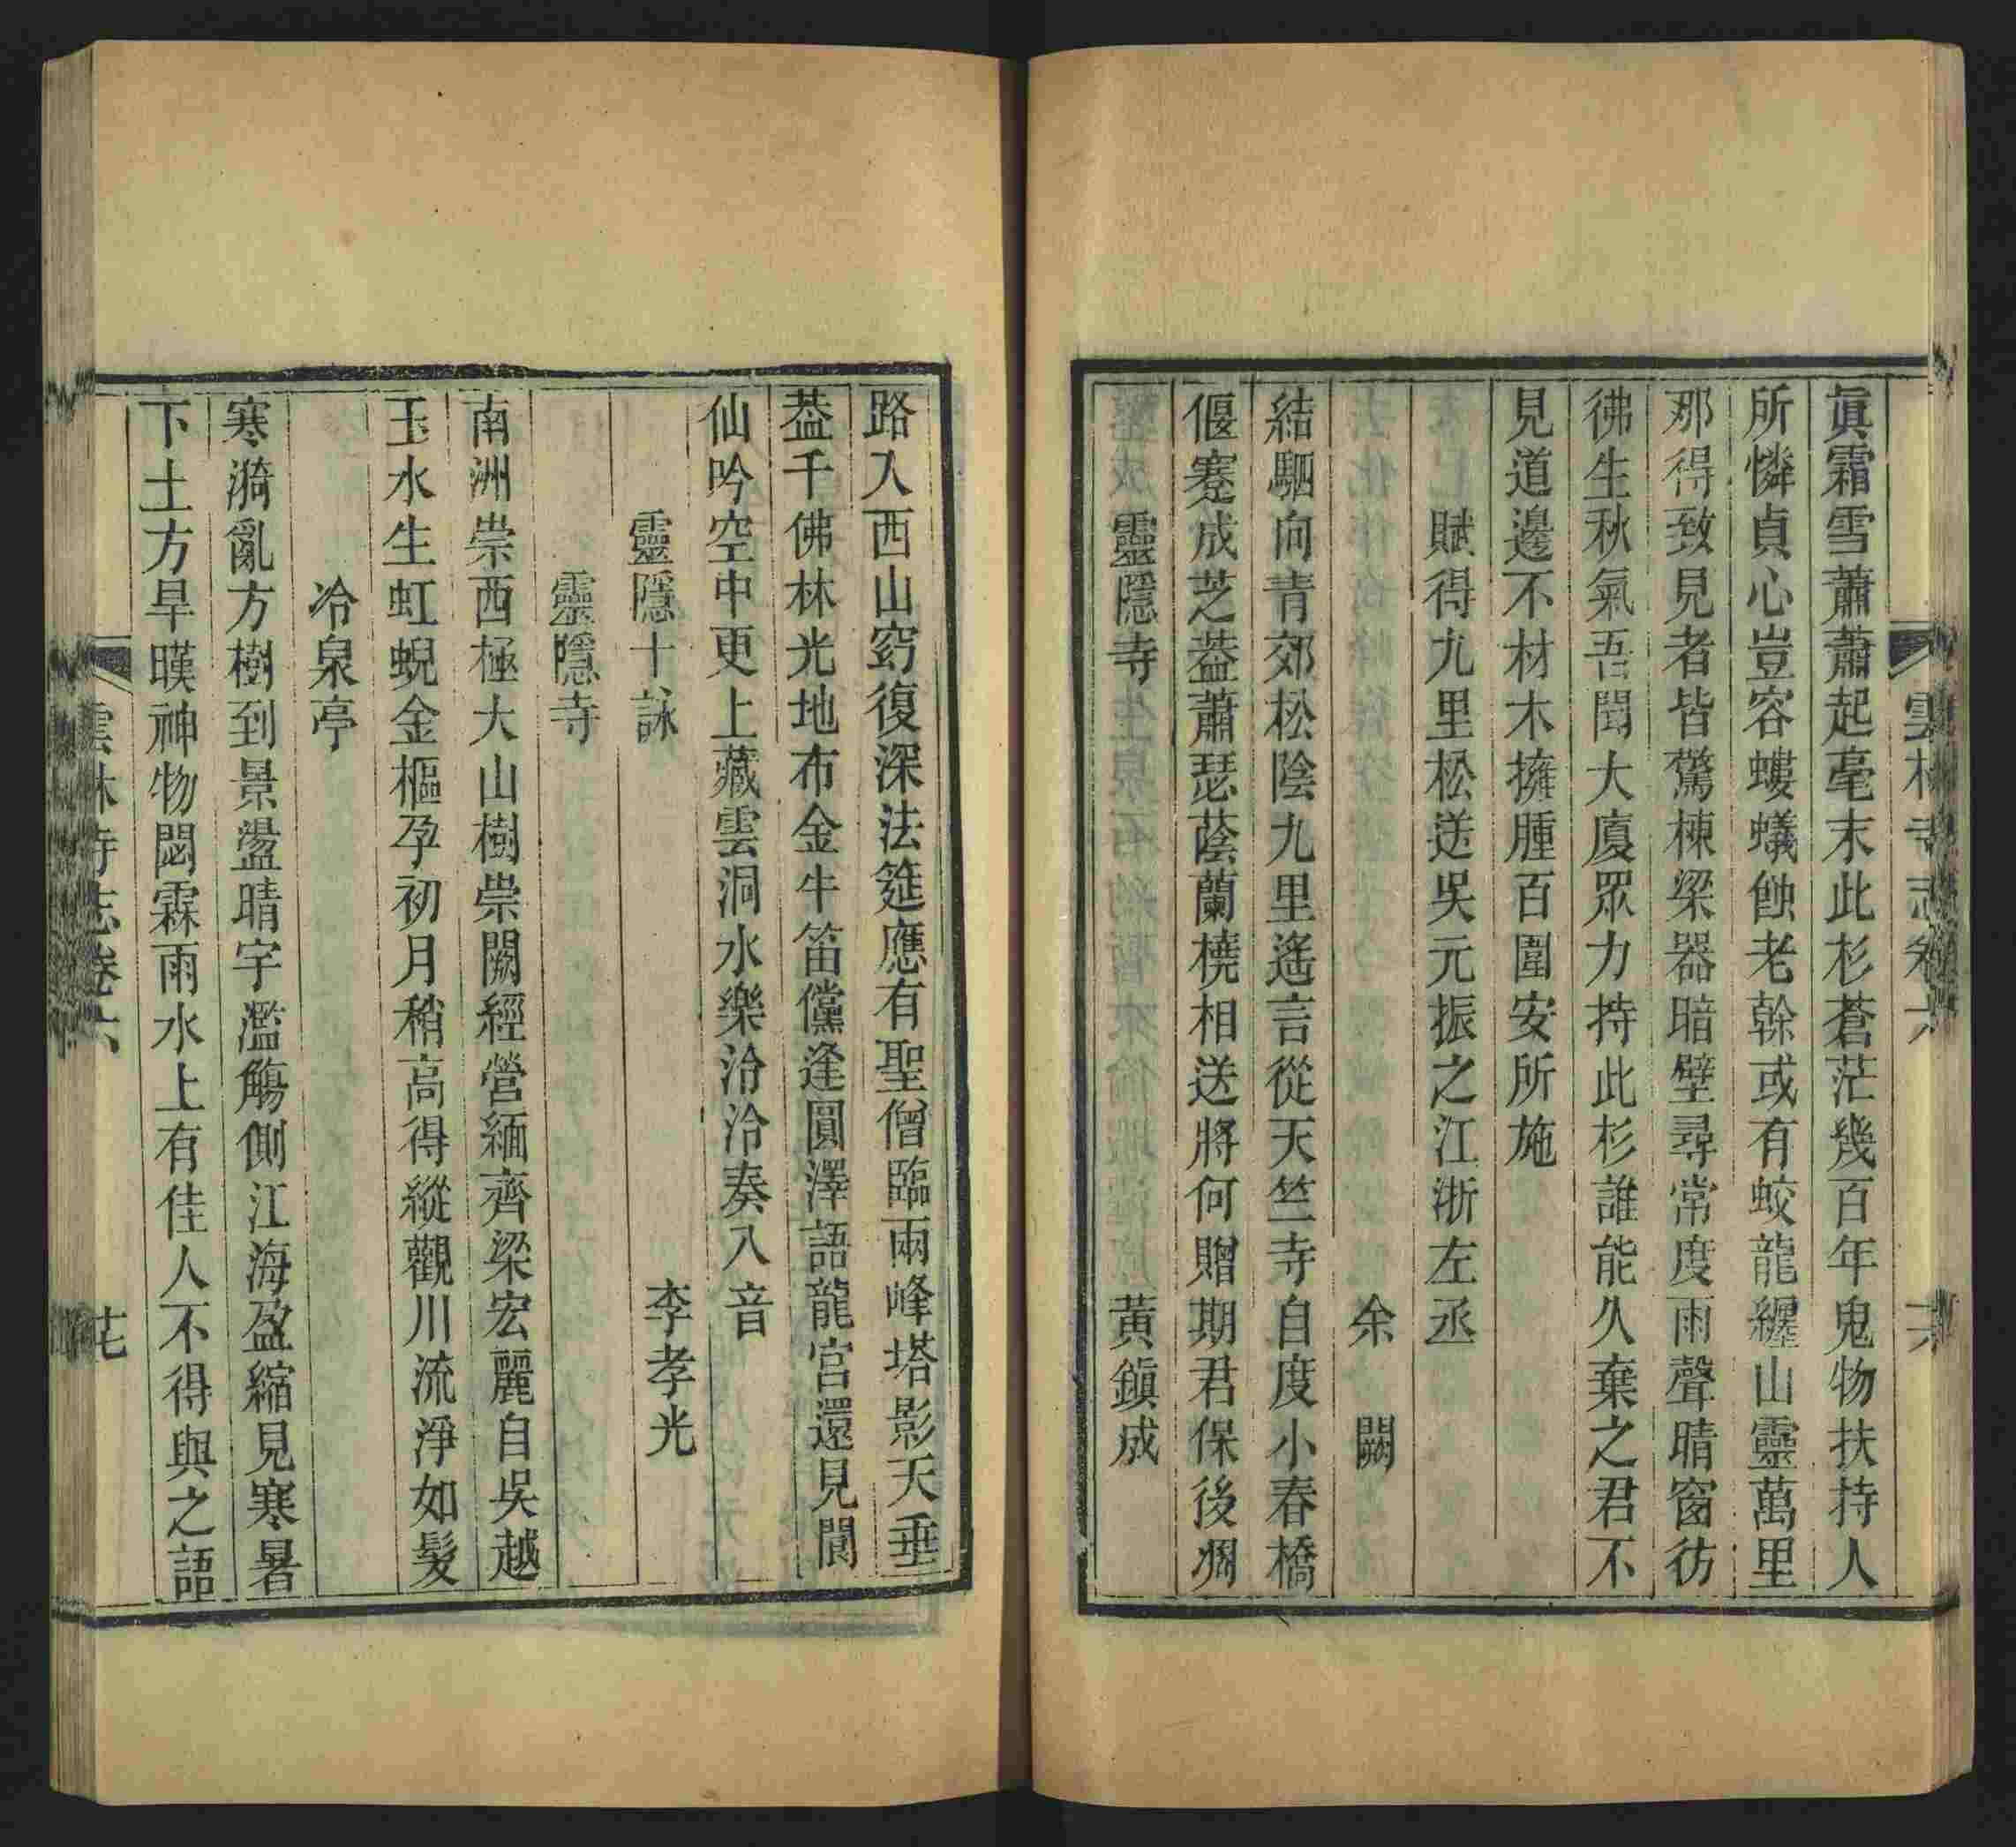 雲林寺志卷六
眞霜雪蕭蕭起毫末此杉蒼茫幾百年鬼物扶持人
所憐貞心豈容螻蟻蝕老幹或有蛟龍纏山靈萬里
那得致見者皆驚棟梁器暗壁尋常度雨聲晴窗彷
彿生秋氣吾聞大廈眾力持此杉誰能久棄之君不
見道邊不材木擁腫百圍安所施
賦得九里松送吳元振之江浙左丞
余闕
結駟向青郊松陰九里遙言從天竺寺自度小春橋
偃蹇成芝葢蕭瑟蔭蘭橈相送將何贈期君保後凋
靈隱寺 黃鎭成
路入西山窈復深法筵應有聖僧臨兩峰塔影天垂
葢千佛林光地布金牛笛儻逢圓澤語龍宮還見閬
仙吟空中更上藏雲洞水樂泠泠奏八音
靈隱十詠 李孝光
靈隱寺
南洲崇西極大山樹崇闕經營緬齊梁宏麗自吳越
玉水生虹蜺金樞孕初月稍高得縱觀川流淨如髮
冷泉亭
寒漪亂方樹到景盪晴宇濫觴側江海盈縮見寒暑
下土方旱暵神物閟霖雨水上有佳人不得與之語
雲林寺志卷六 廿七